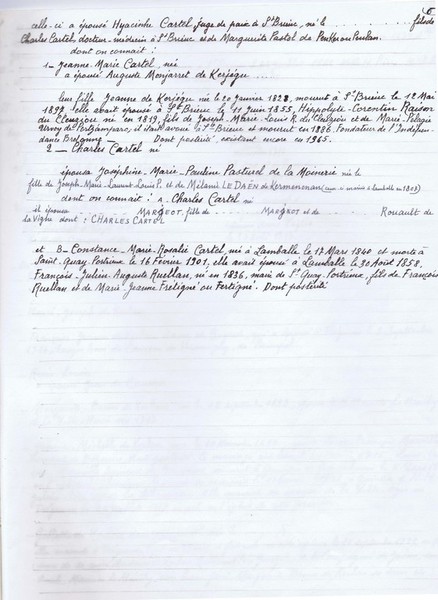 5
celle-ci a épousé Hyacinthe Cartel, Juge de paix à St Brieuc, né le . . . . . . . . . . fils de
Charles Cartel, docteur-médecin à St Brieuc et de Marguerite Pastol de
dont on connait :
1_ Jeanne-Marie Cartel, née
a épousé Auguste Monjarret de Kerjégu ....
leur fille Jeanne de Kerjégu née le 20 Janvier 1828, mourut à St Brieuc le 12 Mai
1892 elle avait épousé à St Brieuc le 11 Juin 1855, Hippolyte-Corentin Raison
du Cleuziou né en 1819, fils de Joseph-Marie-Louis R. du Cleuziou et de Marie-Pélagie
Urvoy de Portzamparc, il était avoué à St Brieuc et mourut en 1896. Fondateur de l'Indépen-
dance Bretonne _ Dont postérité, existant encore en 1965.
2 _ Charles Cartel né
épousa Joséphine-Marie-Pauline Pasturel de la Moinerie né le
fille de Joseph-Marie-Laurent-Louis P. et de Mélanie LE DAËN de Kermenenan
dont on connait : A. Charles Cartel né
et épousa MARGEOT, fille de MARGEOT et de Rouault de
la Vigne dont : CHARLES CARTEL
et B-Constance-Marie-Rosalie Cartel, née à Lamballe le 17 Mars 1840 et morte à
Saint-Quay-Portrieux le 16 Février 1901, elle avait épousé à Lamballe le 30 Août 1858
François-Julien-Auguste Ruellan, né en 1836, maire de St Quay-Portrieux, fils de François
Ruellan et de Marie-Jeanne Fretigné ou Fertigné. Dont postérité